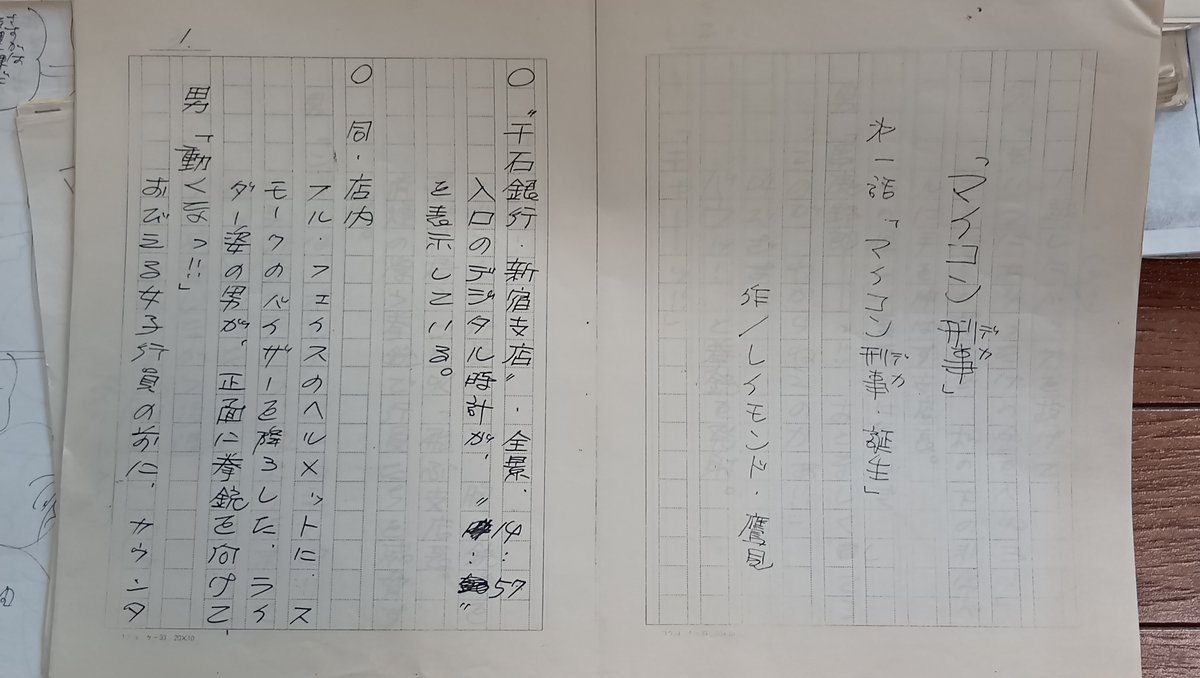 「マイコン刑事」
デカ
第一話「マイコン刑事・誕生」
デカ
作/レイモンド・鷹見
1.
○ "千石銀行・新宿支店"・全景.
入口のデジタル時計が、" 14:57 "
を表示している。
○ 同・店内
フル・フェイスのヘルメットに、ス
モークのバイザーを降ろした、ライ
ダー姿の男が、正面に拳銃を向けて
男「動くなっ!!」
おびえる女子行員の前に、カウンタ
コクヨ ケ-30 20×10